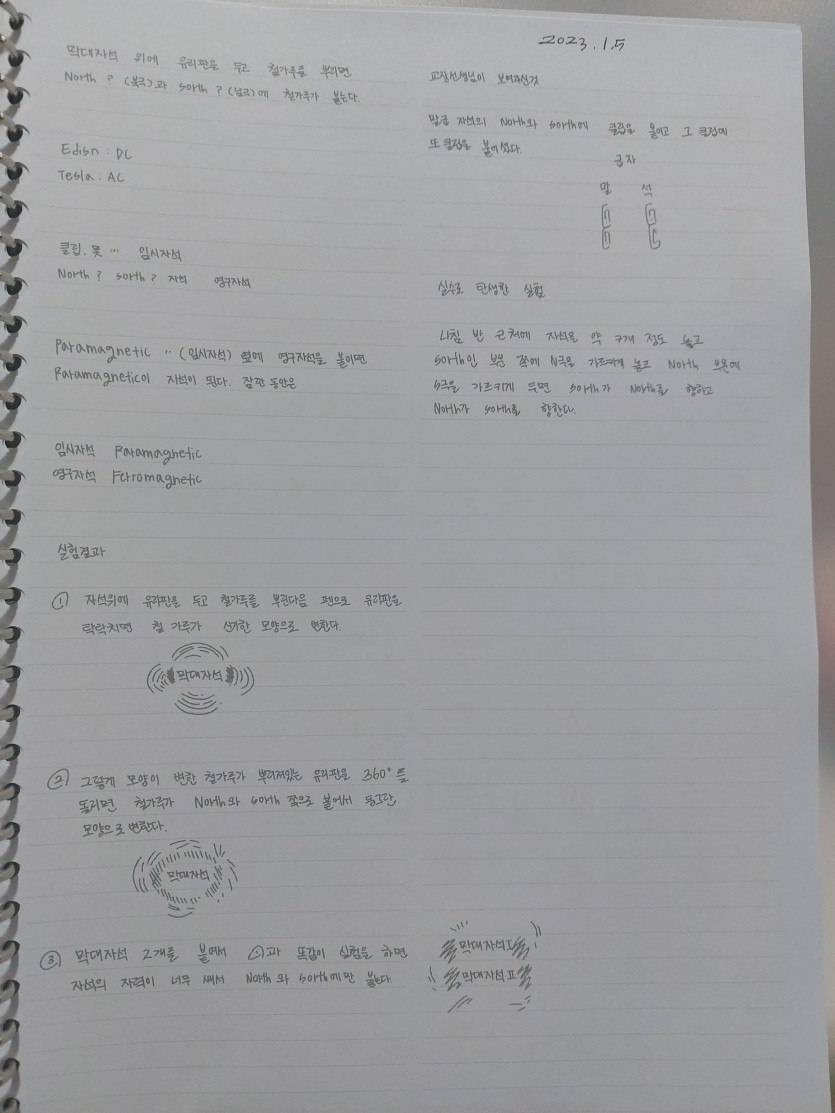 2023.1.5
막대자석 위에 유리판을 두고 철가루를 뿌리면
North ? (북극)과 sorth ? (남극)에 철가루가 붙는다.
Edisn : DC
Tesla : AC
클립. 못 … 임시자석
North ? sorth ? 자석 영구자석
Paramagnetic … (임시자석) 옆에 영구자석을 붙이면
Paramagnetic이 자석이 된다. 잠깐 동안은
임시자석 Paramagnetic
영구자석 Ferromagnetic
실험결과
① 자석위에 유리판을 두고 철가루를 뿌린다음 펜으로 유리판을
탁탁치면 철 가루가 신기한 모양으로 변한다.
막대자석
② 그렇게 모양이 변한 철가루가 뿌려져있는 유리판을 360°
돌리면 철가루가 North와 sorth 쪽으로 붙어서 동그란
모양으로 변한다.
막대자석
③ 막대자석 2개를 붙여서 ①과 똑같이 실험을 하면
자석의 자력이 너무 쎄서 North와 sorth에만 붙는다.
교장선생님이 보여주신것
말굽 자석의 North와 sorth에 클립을 붙이고 그 클립에
또 클립을 붙이셨다.
굽자
말 석
실수로 탄생한 실험
나침 반 근처에 자석을 약 개 정도 놓고
sorth인 부분 쪽에 N극을 가르키게 놓고 North 부분에
S극을 가르키게 두면 sorth가 North를 향하고
North가 sorth를 향한다.
막대자석Ⅰ
막대자석Ⅱ